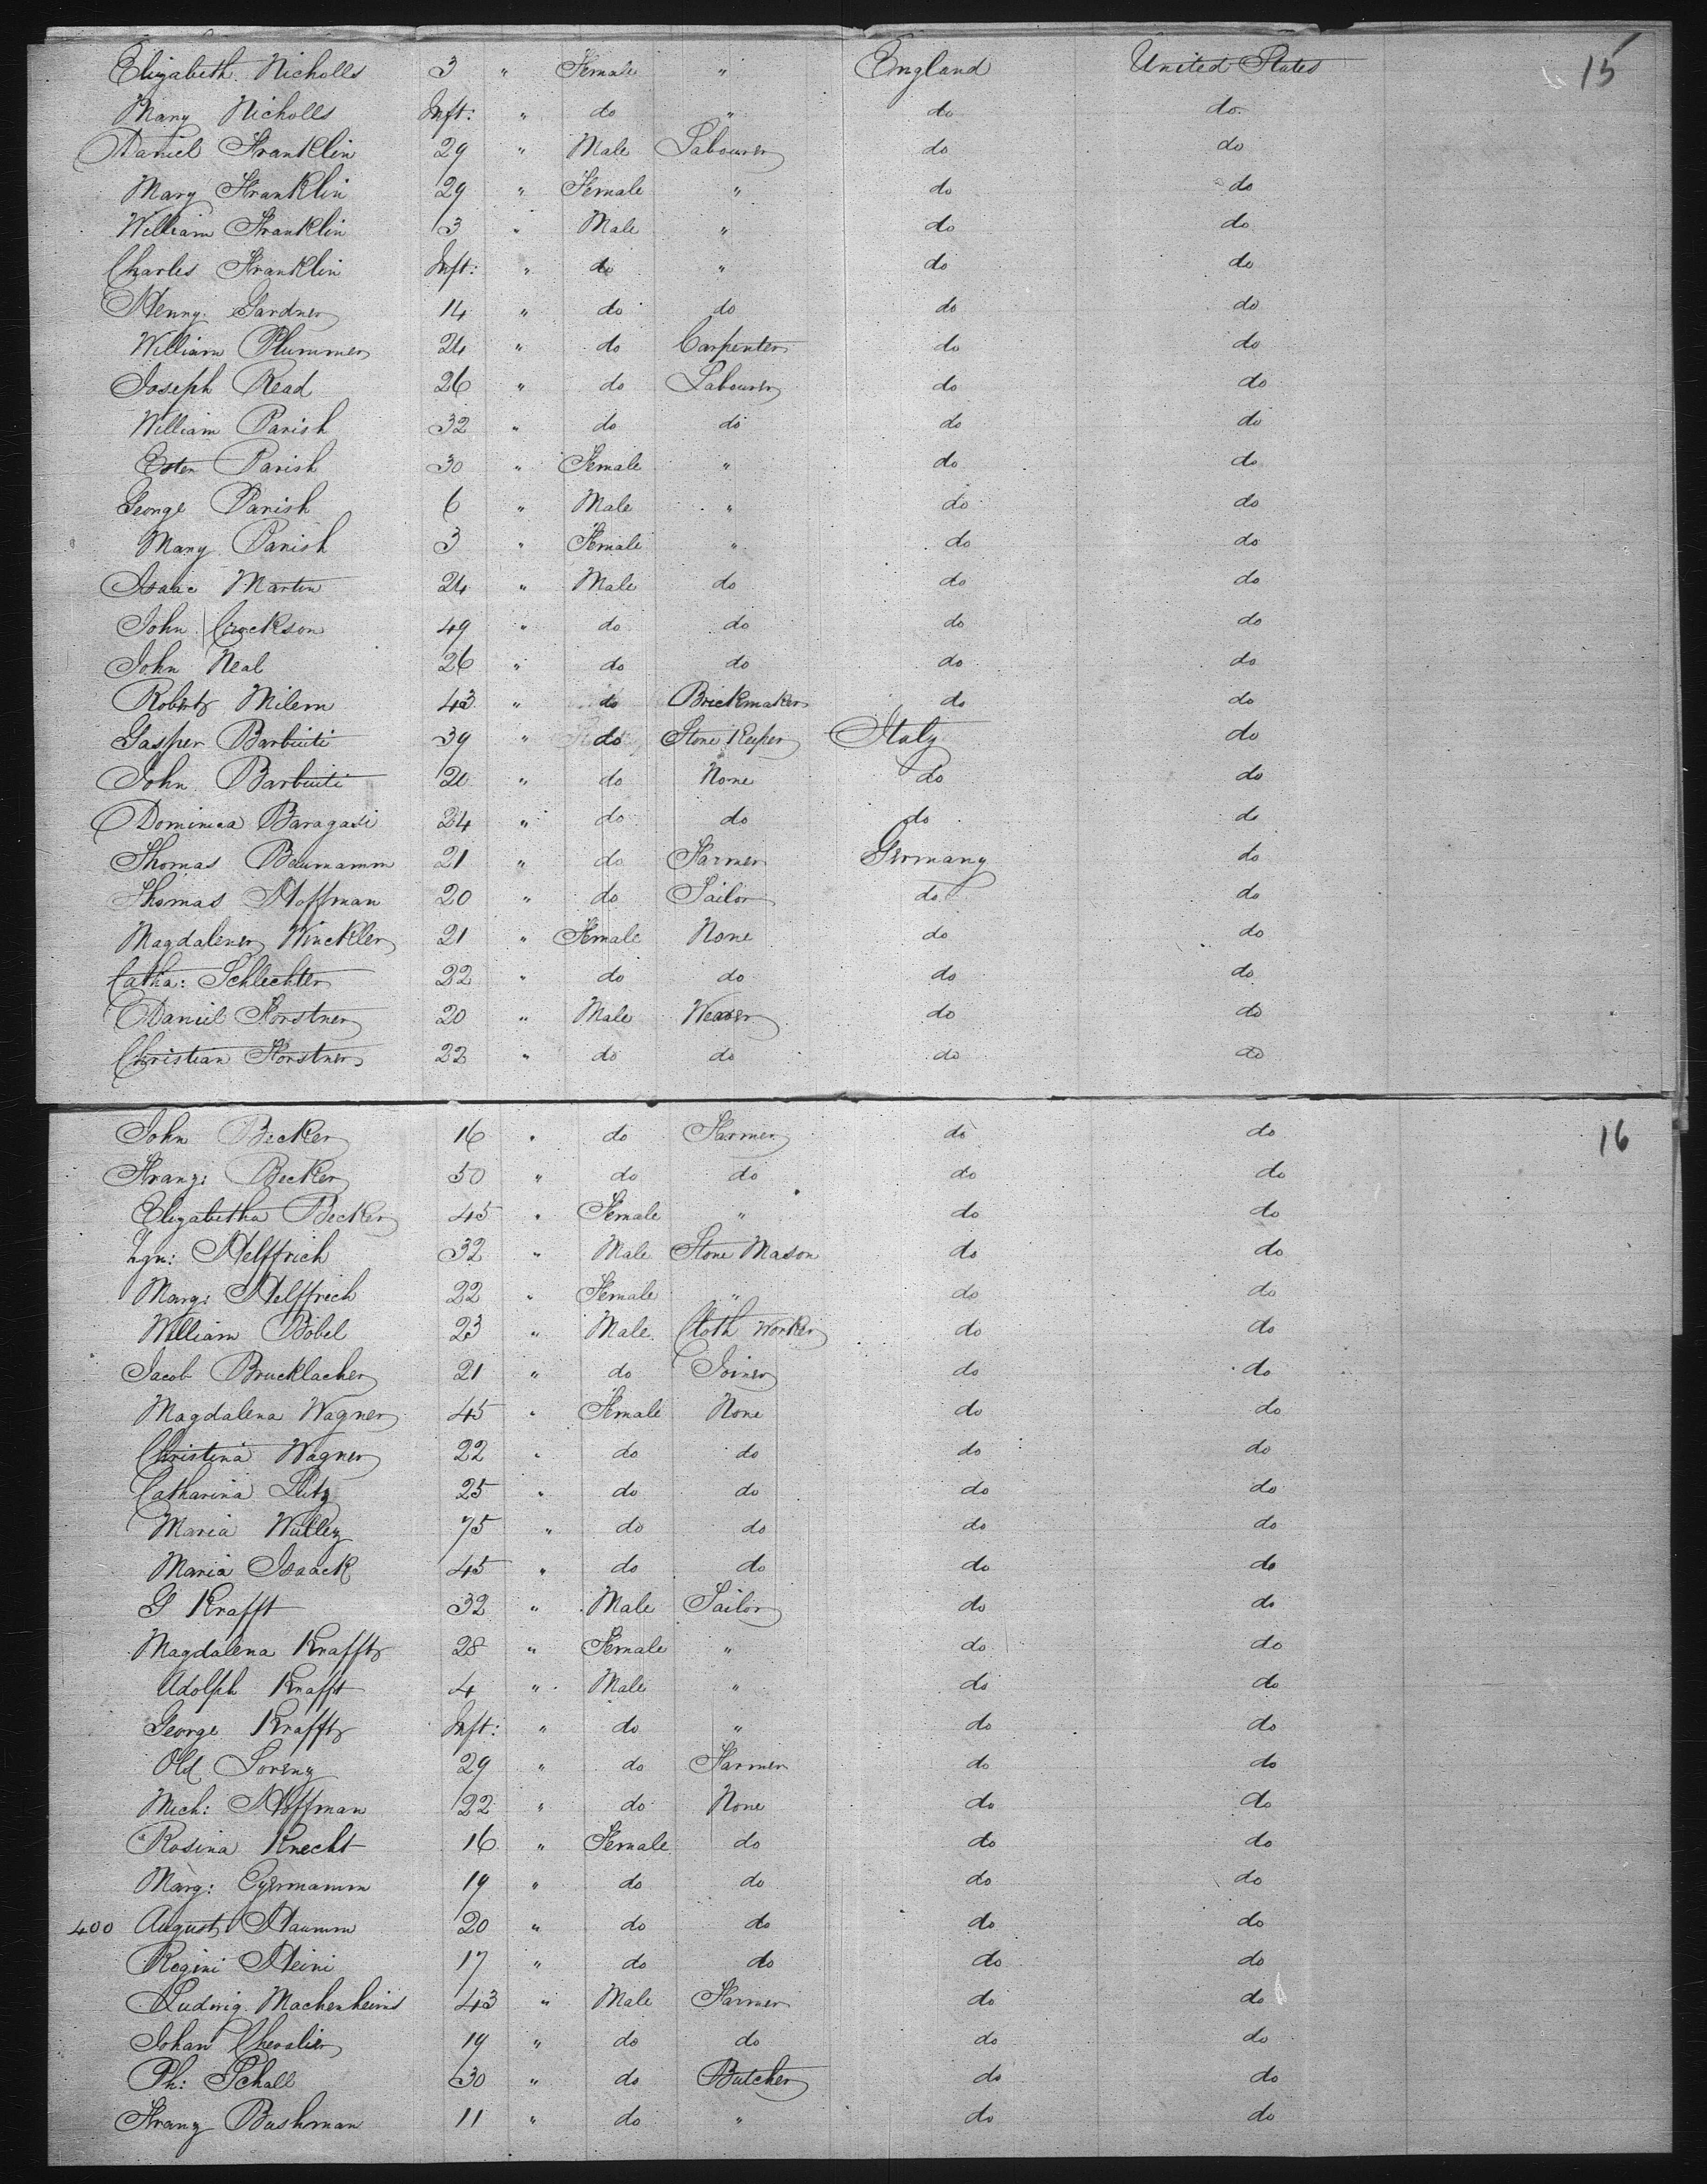 Elizabeth Nicholls 3 " Female " England United States 15
Mary Nicholls Inft: " do " do do
Daniel Franklin 29 " Male Labourer do do
Mary Franklin 29 " Female " do do
William Franklin 3 " Male " do do
Charles Franklin Inft: " do " do do
Henry Gardner 14 " do do do do
William Plummer 24 " do Carpenter do do
Joseph Read 26 " do Labourer do do
William Parish 32 " do do do do
Ester Parish 30 " Female " do do
George Parish 6 " Male " do do
Mary Parish 3 " Female " do do
Isaac Martin 24 " Male do do do
John Crockson 49 " do do do do
John Neal 26 " do do do do
Robert Milem 43 " do Brickmaker do do
Gasper Barbuiti 39 " do Store Keeper Italy do
John Barbuiti 20 " do None do do
Dominica Baragadi 24 " do do do do
Thomas Baumamm 21 " do Farmer Germany do
Thomas Hoffman 20 " do Tailor do do
Magdalener Winckler 21 " Female None do do
Catha: Schlechter 22 " do do do do
Daniel Forstner 20 " Male Weaver do do
Christian Forstner 22 " do do do do
John Becker 16 " do Farmer do do 16
Franz: Becker 50 " do do do do
Elizabetha Becker 45 " Female " do do
Helffrich 32 " Male Stone Mason do do
Marg: Helffrich 22 " Female " do do
William Böbel 23 " Male Cloth Worker do do
Jacob Brucklacher 21 " do Joiner do do
Magdalena Wagner 45 " Female None do do
Christina Wagner 22 " do do do do
Catharina Lutz 25 " do do do do
Maria Wulley 75 " do do do do
Maria Isaack 45 " do do do do
G Krafft 32 " Male Tailor do do
Magdalena Krafft 28 " Female " do do
Adolph Krafft 4 " Male " do do
George Krafft Inft: " do " do do
Old Lorenz 29 " do Farmer do do
Mich: Hoffman 22 " do None do do
Rosina Knecht 16 " Female do do do
Marg: Eyermamm 19 " do do do do
400 August Haumm 20 " do do do do
Regini Heini 17 " do do do do
Ludwig Machenheims 43 " Male Farmer do do
Johan Chevalier 19 " do do do do
Ph: Schall 30 " do Butcher do do
Franz Bushman 11 " do " do do